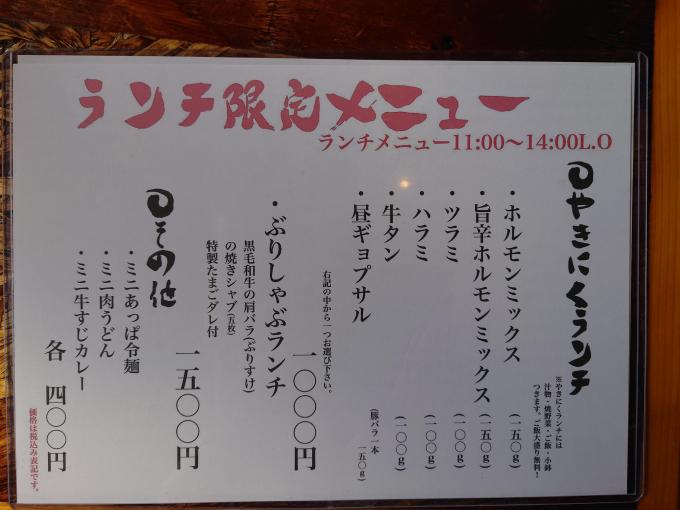 ランチ限定メニュー
ランチメニュー11:00〜14:00L.O
やきにくランチ
※やきにくランチには
汁物・焼野菜・ご飯・小鉢
つきます。ご飯大盛り無料!
・ホルモンミックス (一五〇g)
・旨辛ホルモンミックス (一五〇g)
・ツラミ (一〇〇g)
・ハラミ (一〇〇g)
・牛タン (一〇〇g)
・昼ギョプサル (豚バラ一本
一五〇g)
右記の中から一つお選び下さい。
一〇〇〇円
・ぶりしゃぶランチ
黒毛和牛の肩バラ(ぶりすけ)
の焼きシャブ(五枚)
特製たまごダレ付
一五〇〇円
その他
・ミニあっぱ冷麺
・ミニ肉うどん
・ミニ牛すじカレー
各 四〇〇円
価格は税込み表記です。